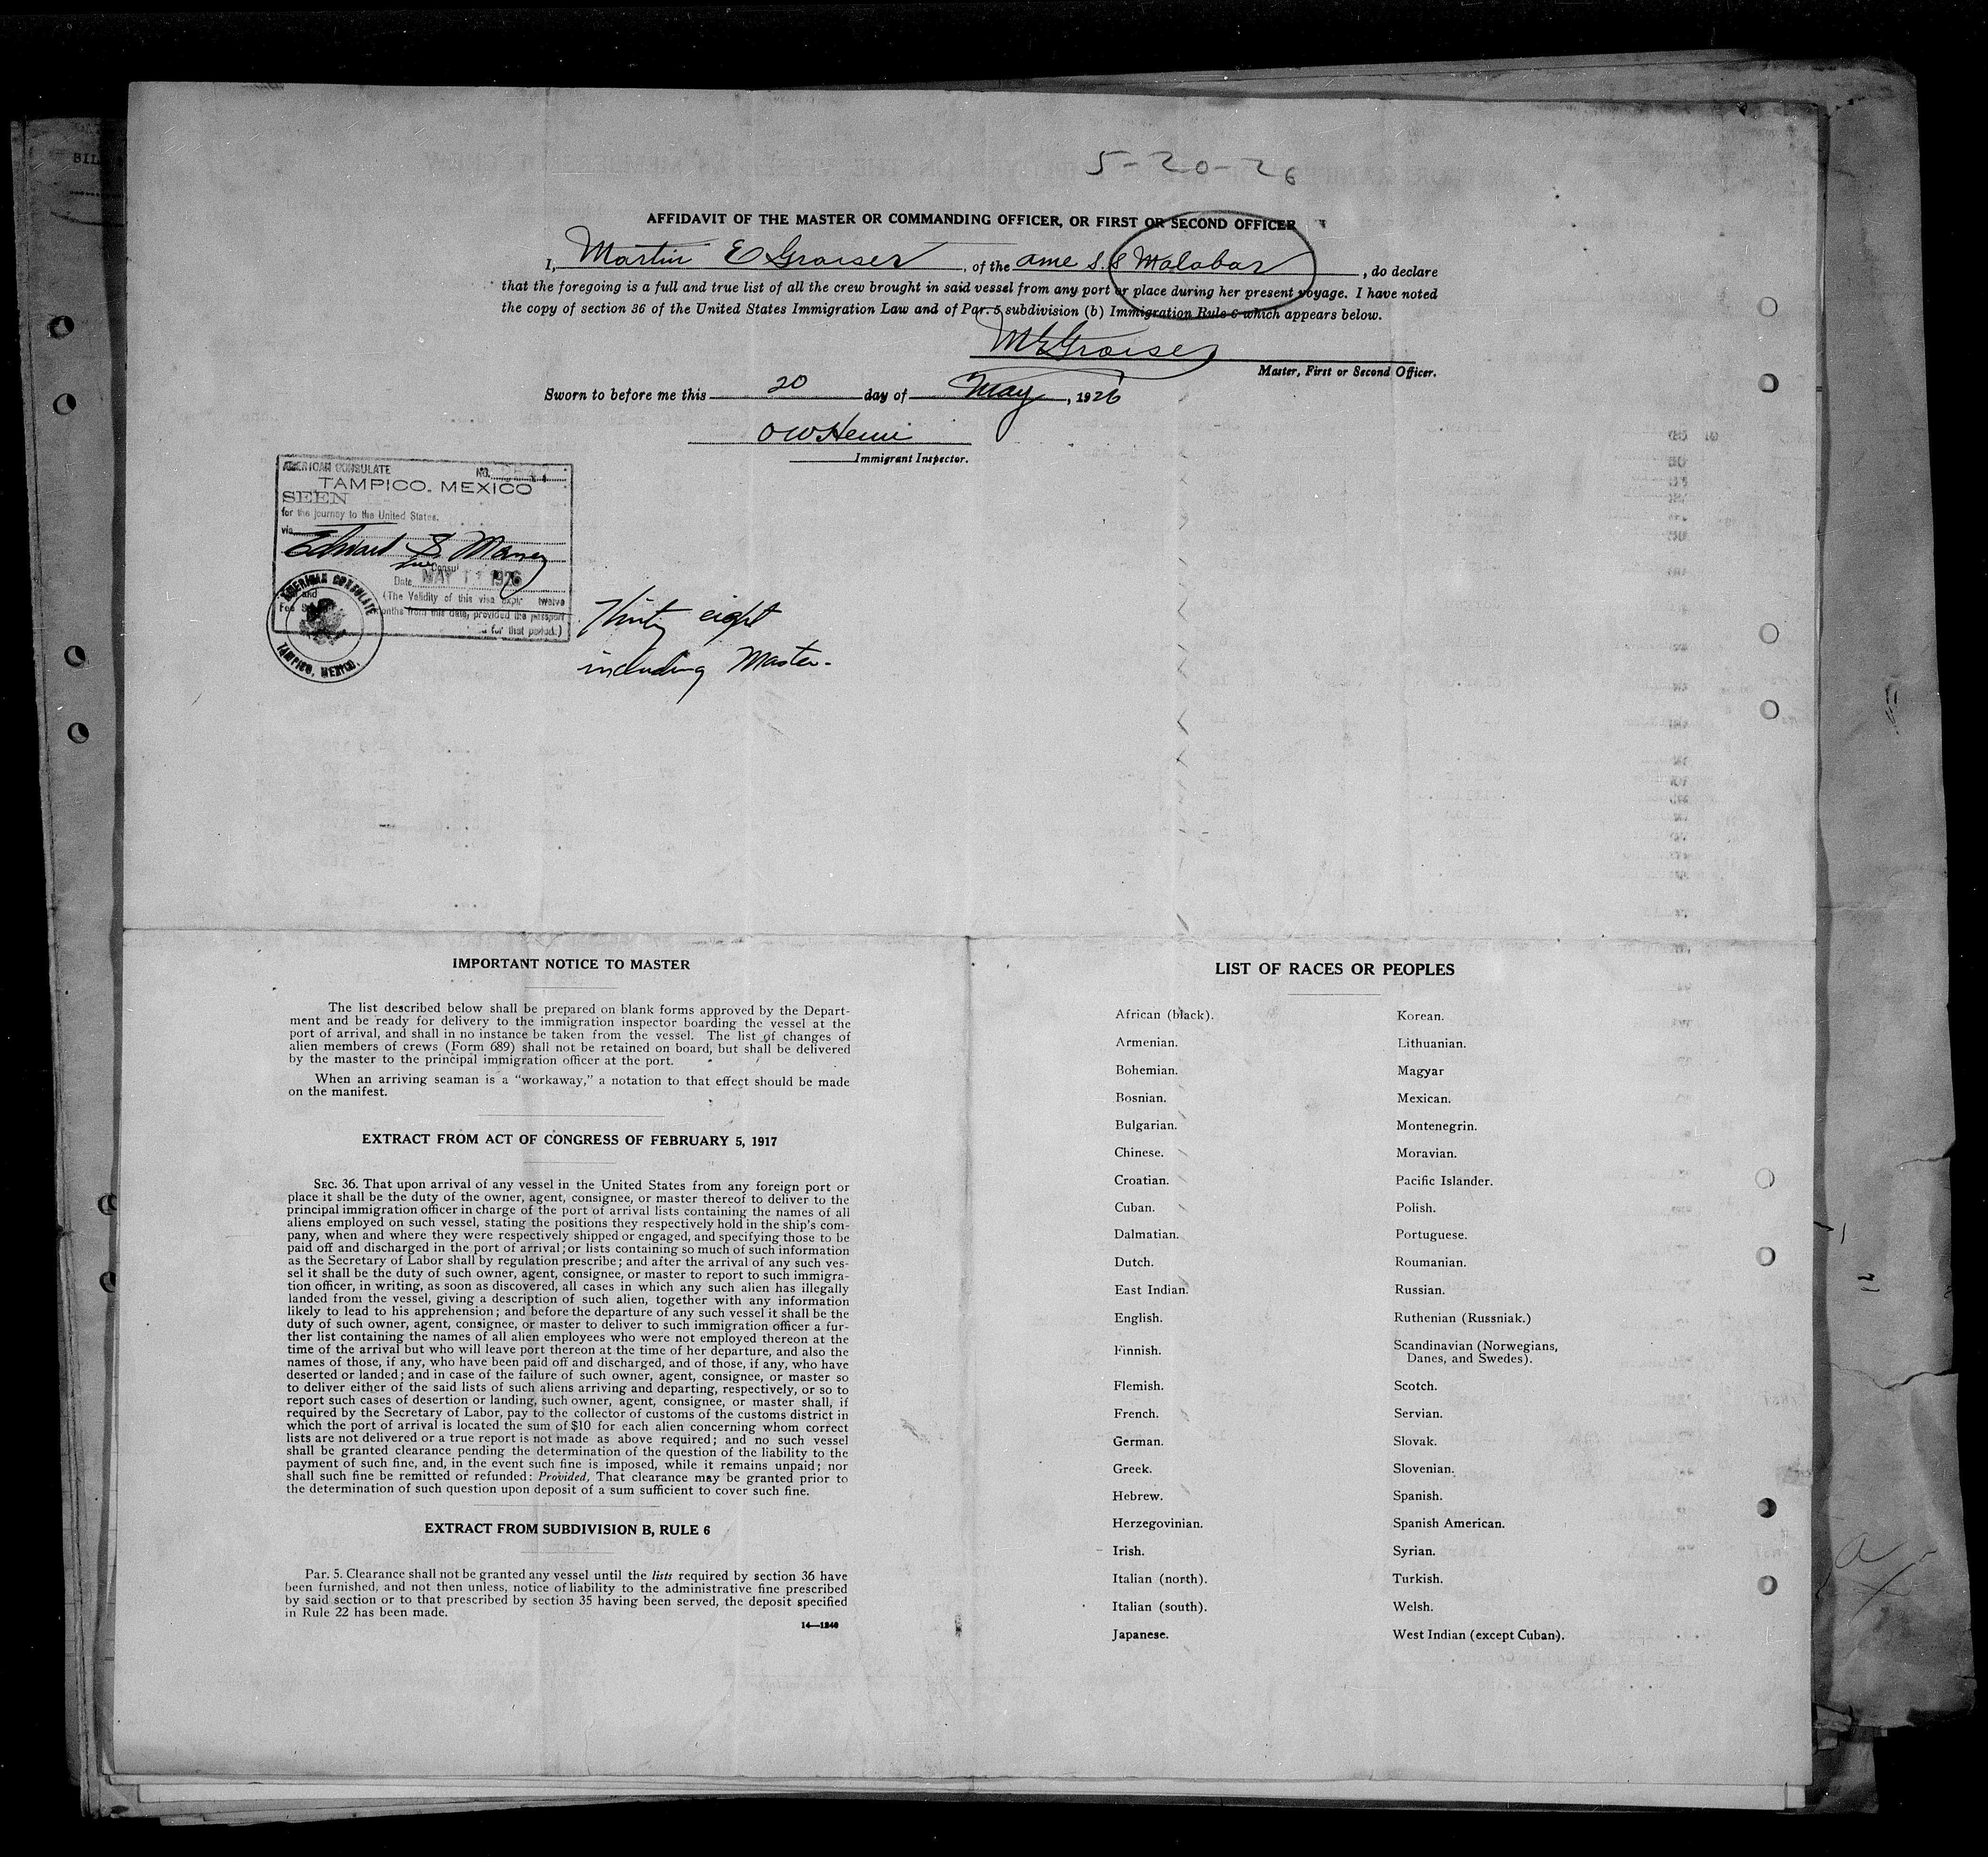 BIL
5-20-26
AFFIDAVIT OF THE MASTER OR COMMANDING OFFICER, OR FIRST OR SECOND OFFICER
I, Martin E Graiser, of the Ame S.S Malabar, do declare
that the foregoing is a full and true list of all the crew brought in said vessel from any port or place during her present voyage. I have noted
the copy of section 36 of the United States Immigration Law and of Par. 5 subdivision (b) Immigration Rule 6 which appears below.
M E Graiser
Master, First or Second Officer.
Sworn to before me this 20 day of May, 1926
O W
Immigrant Inspector.
AMERICAN CONSULATE NO.
TAMPICO, MEXICO
SEEN
for the journey to the United States.
via
Edward S. Maney
Consul
Date MAY 11 1926
(The Validity of this visa twelve
months from this date, provided the passport
for that period.)
AMERICAN CONSULATE
TAMPICO, MEXICO.
Thirty eight
including Master-
IMPORTANT NOTICE TO MASTER
The list described below shall be prepared on blank forms approved by the Depart-
ment and be ready for delivery to the immigration inspector boarding the vessel at the
port of arrival, and shall in no instance be taken from the vessel. The list of changes of
alien members of crews (Form 689) shall not be retained on board, but shall be delivered
by the master to the principal immigration officer at the port.
When an arriving seaman is a “workaway,” a notation to that effect should be made
on the manifest.
EXTRACT FROM ACT OF CONGRESS OF FEBRUARY 5, 1917
SEC. 36. That upon arrival of any vessel in the United States from any foreign port or
place it shall be the duty of the owner, agent, consignee, or master thereof to deliver to the
principal immigration officer in charge of the port of arrival lists containing the names of all
aliens employed on such vessel, stating the positions they respectively hold in the ship's com-
pany, when and where they were respectively shipped or engaged, and specifying those to be
paid off and discharged in the port of arrival; or lists containing so much of such information
as the Secretary of Labor shall by regulation prescribe; and after the arrival of any such ves-
sel it shall be the duty of such owner, agent, consignee, or master to report to such immigra-
tion officer, in writing, as soon as discovered, all cases in which any such alien has illegally
landed from the vessel, giving a description of such alien, together with any information
likely to lead to his apprehension; and before the departure of any such vessel it shall be the
duty of such owner, agent, consignee, or master to deliver to such immigration officer a fur-
ther list containing the names of all alien employees who were not employed thereon at the
time of the arrival but who will leave port thereon at the time of her departure, and also the
names of those, if any, who have been paid off and discharged, and of those, if any, who have
deserted or landed; and in case of the failure of such owner, agent, consignee, or master so
to deliver either of the said lists of such aliens arriving and departing, respectively, or so to
report such cases of desertion or landing, such owner, agent, consignee, or master shall, if
required by the Secretary of Labor, pay to the collector of customs of the customs district in
which the port of arrival is located the sum of $10 for each alien concerning whom correct
lists are not delivered or a true report is not made as above required; and no such vessel
shall be granted clearance pending the determination of the question of the liability to the
payment of such fine, and, in the event such fine is imposed, while it remains unpaid; nor
shall such fine be remitted or refunded: Provided, That clearance may be granted prior to
the determination of such question upon deposit of a sum sufficient to cover such fine.
EXTRACT FROM SUBDIVISION B, RULE 6
Par. 5. Clearance shall not be granted any vessel until the lists required by section 36 have
been furnished, and not then unless, notice of liability to the administrative fine prescribed
by said section or to that prescribed by section 35 having been served, the deposit specified
in Rule 22 has been made.
14—1240
LIST OF RACES OR PEOPLES
African (black).
Armenian.
Bohemian.
Bosnian.
Bulgarian.
Chinese.
Croatian.
Cuban.
Dalmatian.
Dutch.
East Indian.
English.
Finnish.
Flemish.
French.
German.
Greek.
Hebrew.
Herzegovinian.
Irish.
Italian (north).
Italian (south).
Japanese.
Korean.
Lithuanian.
Magyar
Mexican.
Montenegrin.
Moravian.
Pacific Islander.
Polish.
Portuguese.
Roumanian.
Russian.
Ruthenian (Russniak.)
Scandinavian (Norwegians,
Danes, and Swedes).
Scotch.
Servian.
Slovak.
Slovenian.
Spanish.
Spanish American.
Syrian.
Turkish.
Welsh.
West Indian (except Cuban).